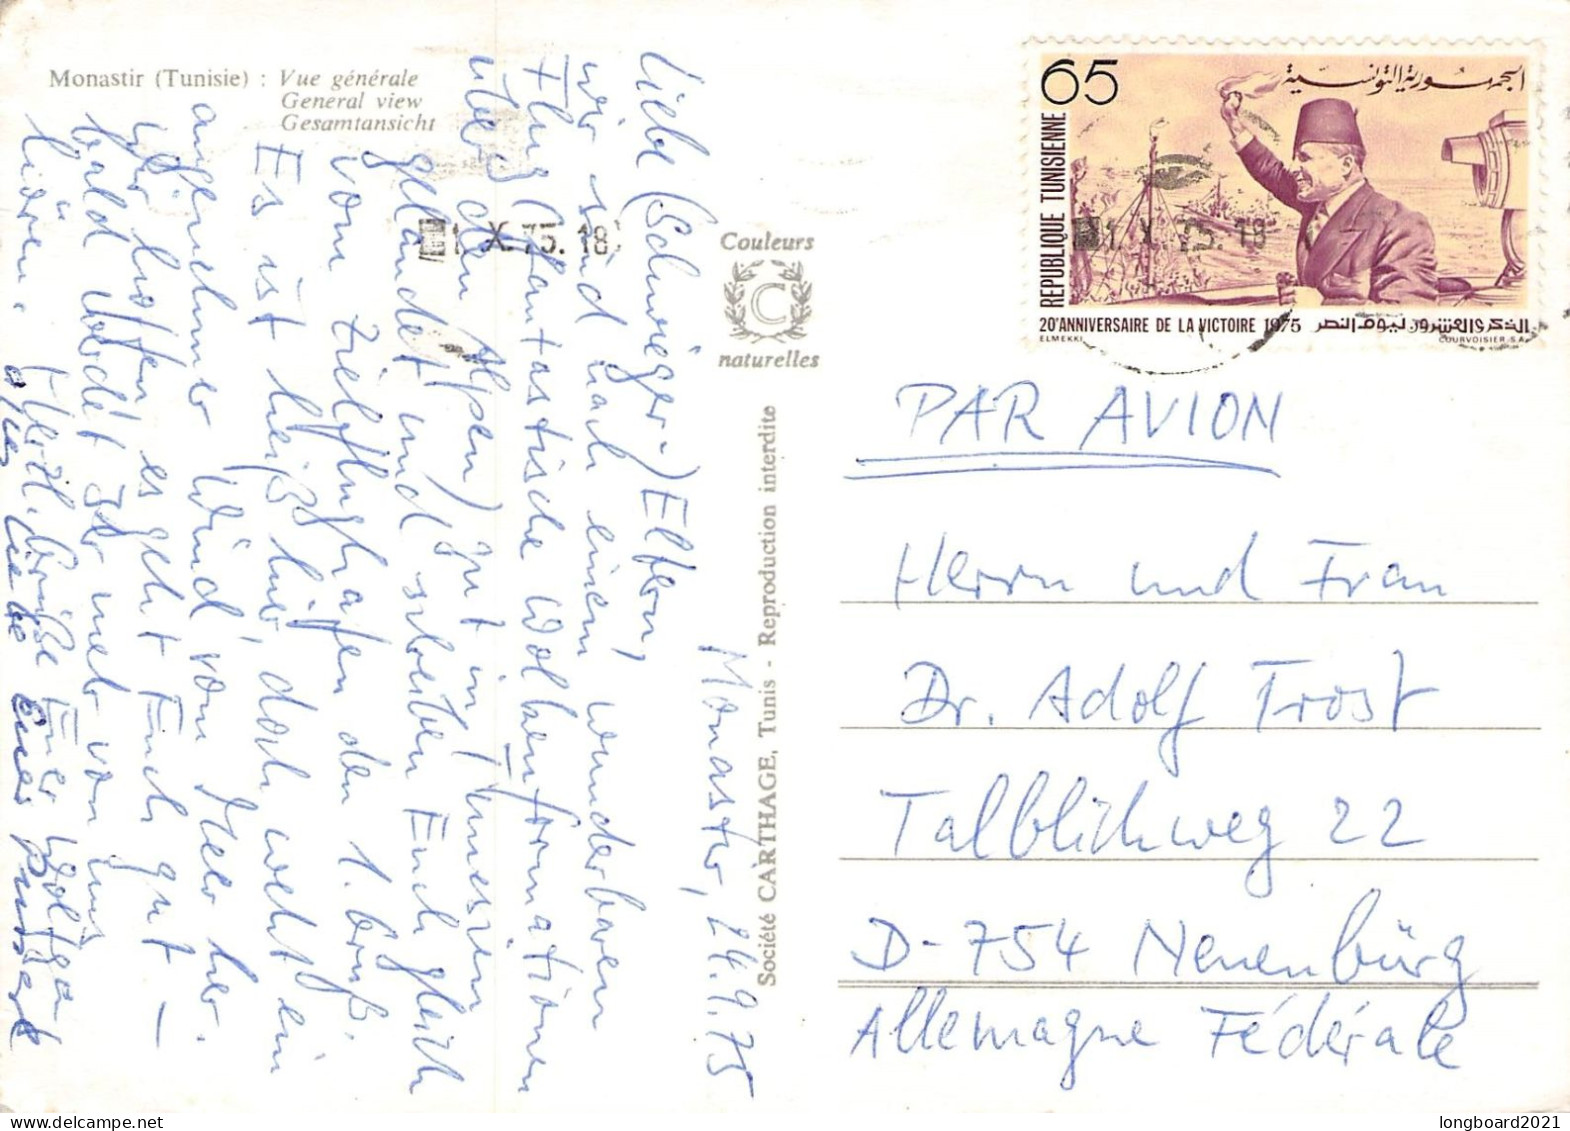 Monastir (Tunisie) : Vue générale
General view
Gesamtansicht
Monastir, 24.9.75
Liebe (Schwieger-) Eltern,
wir sind nach einem wunderbaren
Flug (fantastische Wolkenformationen
über den Alpen) gut in Tunesien
gelandet und schreiben Euch gleich
vom Zielflughafen den 1. Gruß.
Es ist heiß hier, doch weht ein
angenehmer Wind vom Meer her.
Wir hoffen es geht Euch gut –
bald werdet Ihr mehr von uns
hören.
Herzl. Grüße Euer Wolfgang
Couleurs
C
naturelles
Société CARTHAGE, Tunis - Reproduction interdite
1. X. 75. 18
65
الجمهورية التونسية
REPUBLIQUE TUNISIENNE
1. X. 75. 18
20e ANNIVERSAIRE DE LA VICTOIRE 1975 الذكرى العشرون ليوم النصر
ELMEKKI
COURVOISIER S.A.
PAR AVION
Herrn und Frau
Dr. Adolf Trost
Talblickweg 22
D-754 Neuenbürg
Allemagne Fédérale
longboard2021